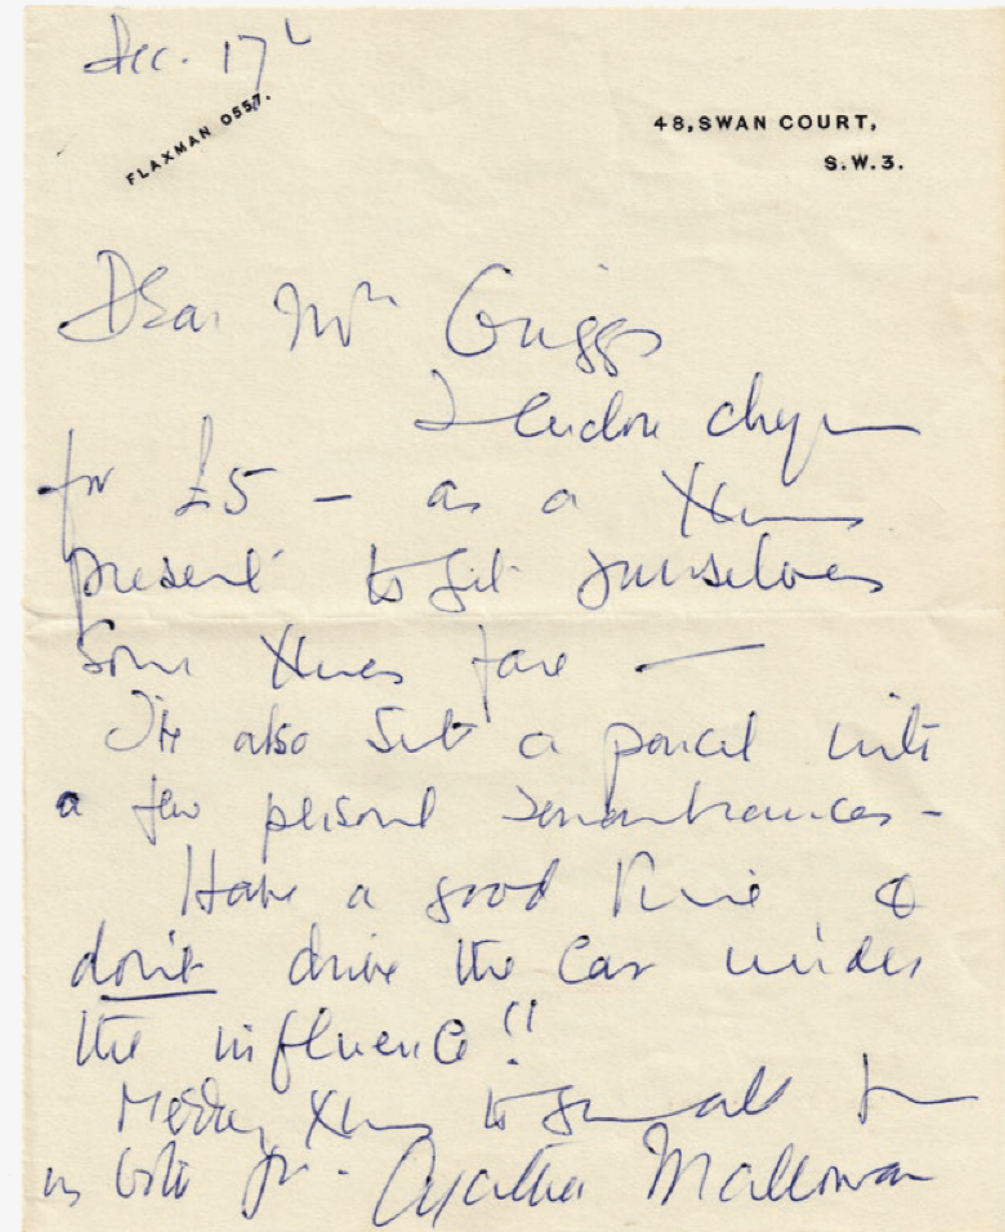 Dec. 17th
FLAXMAN 0557.
48, SWAN COURT,
S.W.3.
Dear Mrs Griggs
I enclose cheque
for £5 - as a Xmas
present to get yourselves
some Xmas fare —
I've also sent a parcel with
a few personal remembrances -
Have a good time &
don't drive the car under
the influence!!
Merry Xmas to you all from
us both
Agatha Mallowan